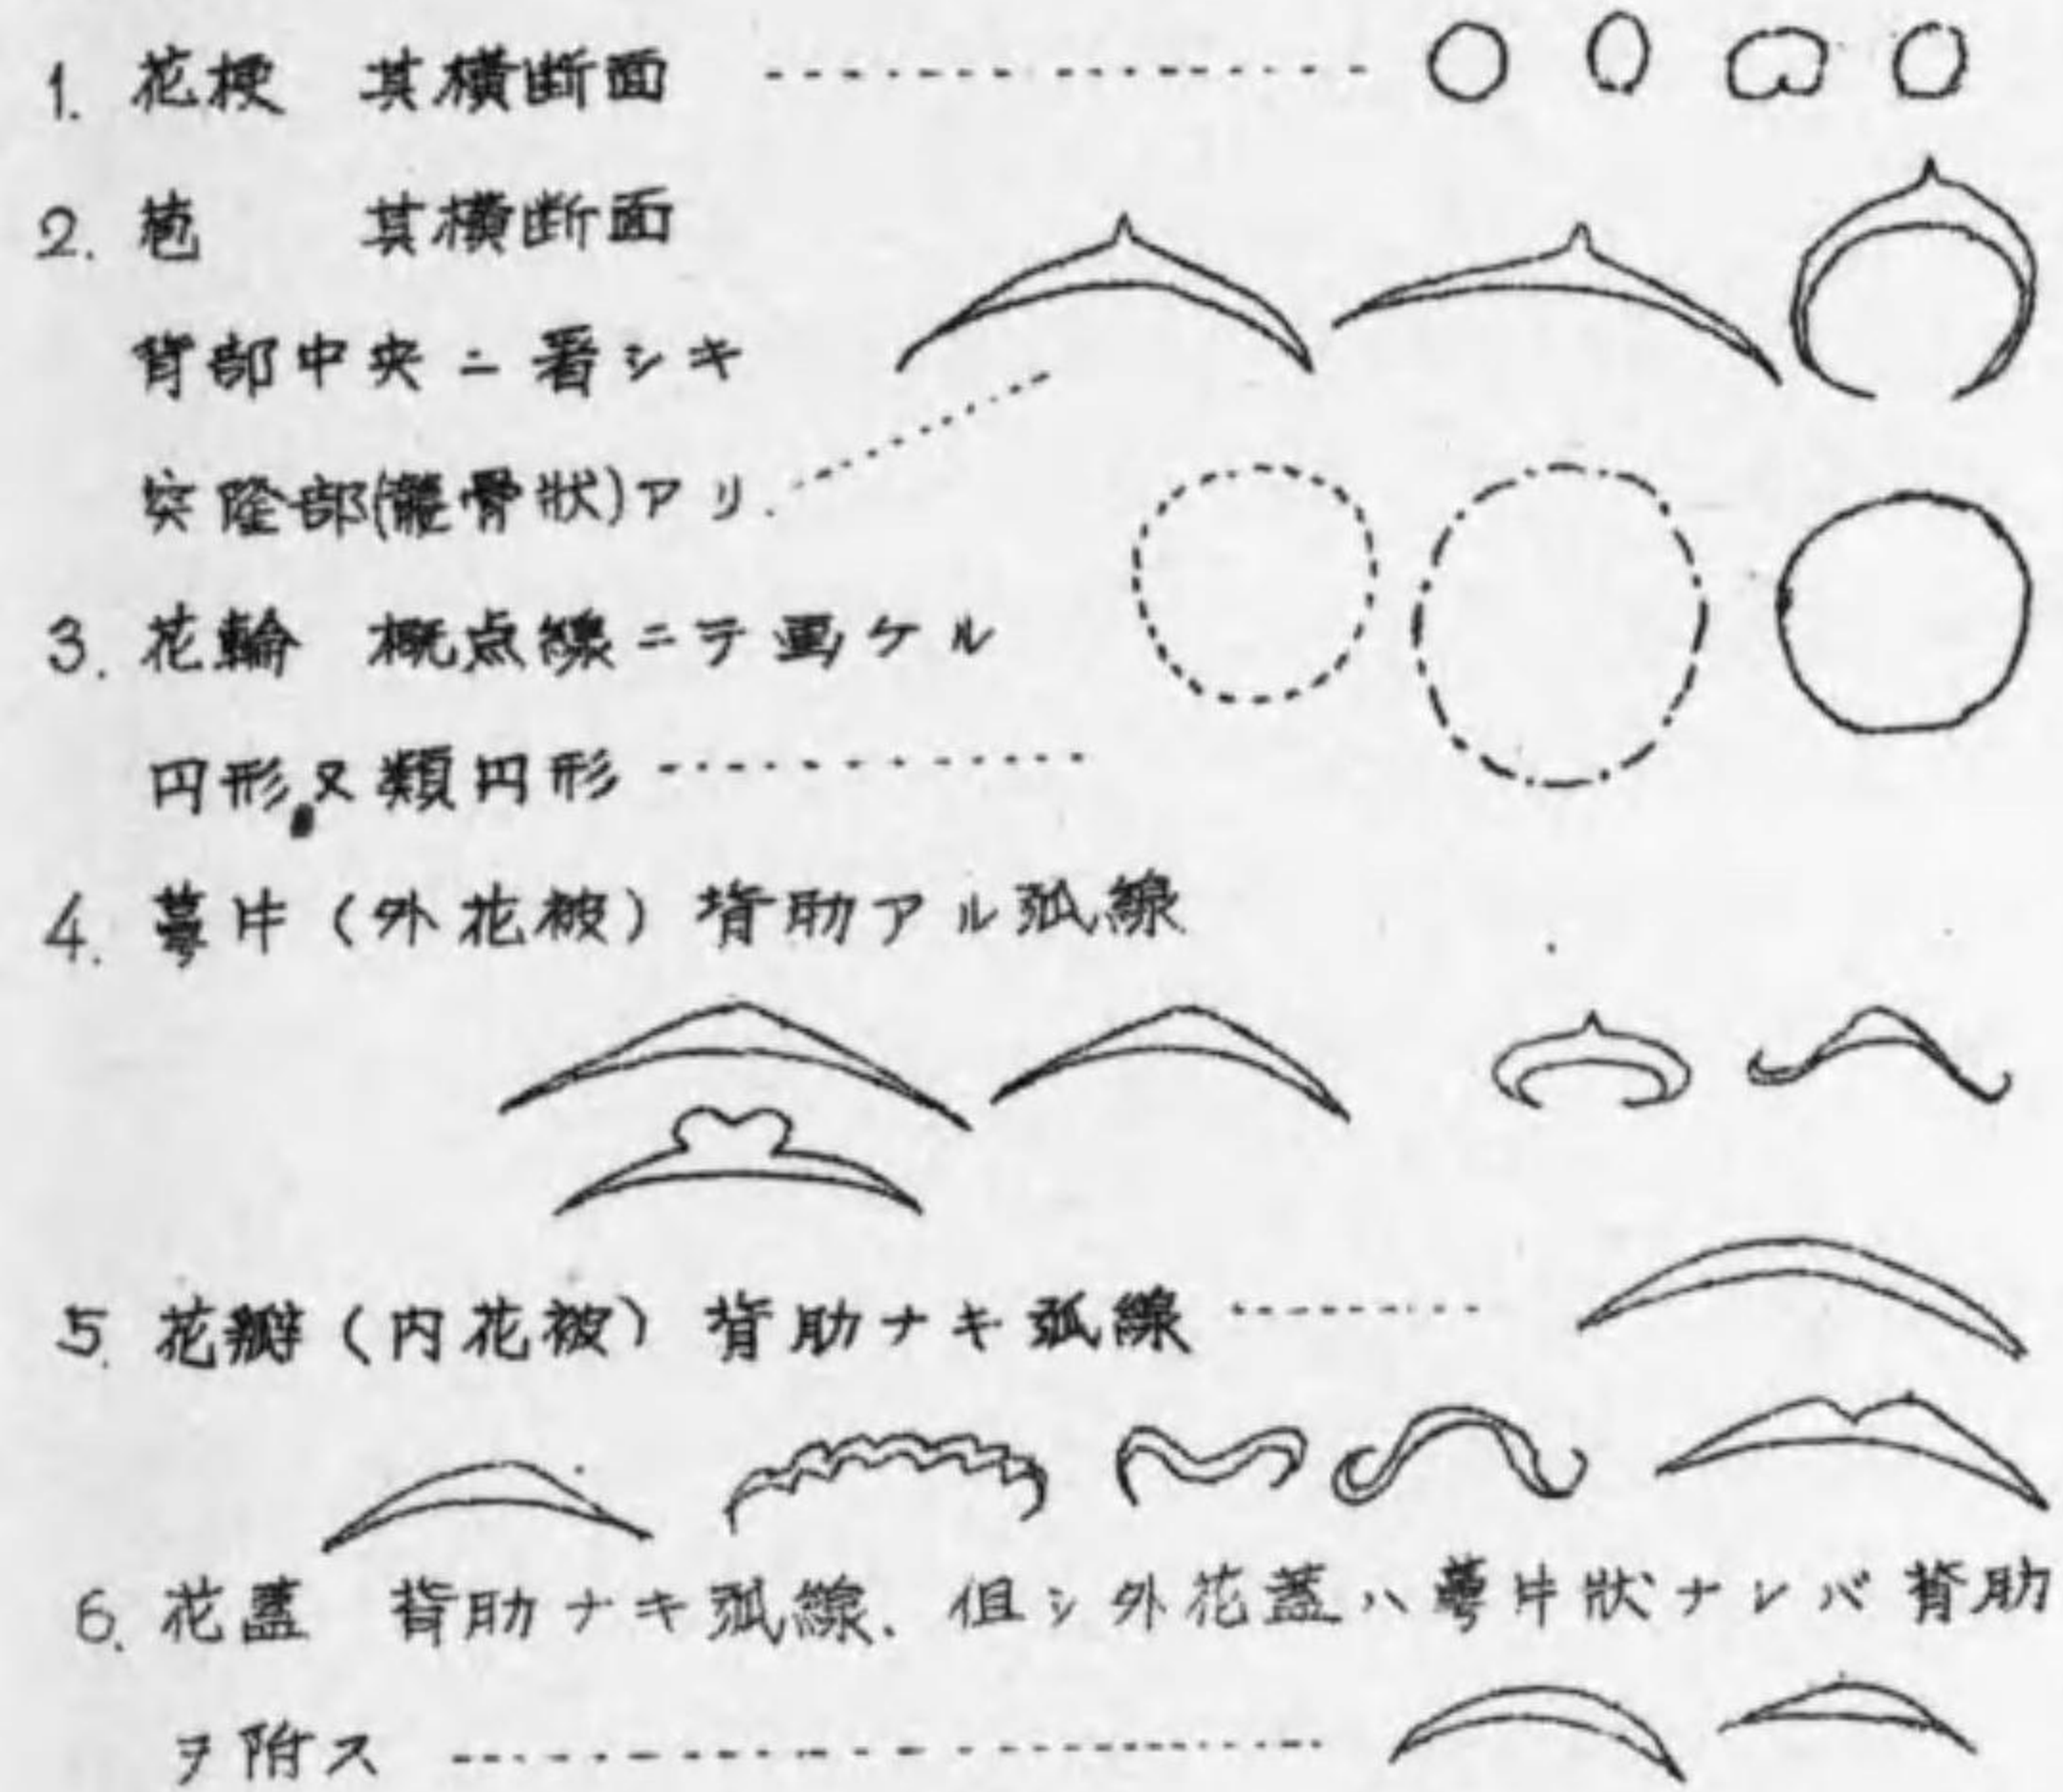 1. 花梗 其横断面
2. 苞 其横断面
背部中央ニ著シキ
突隆部(龍骨狀)アリ.
3. 花輪 概点線ニテ画ケル
円形,又類円形
4. 萼片(外花被)背肋アル弧線
5. 花瓣(内花被)背肋ナキ弧線
6. 花蓋 背肋ナキ弧線. 但シ外花蓋ハ萼片狀ナレバ背肋
ヲ附ス